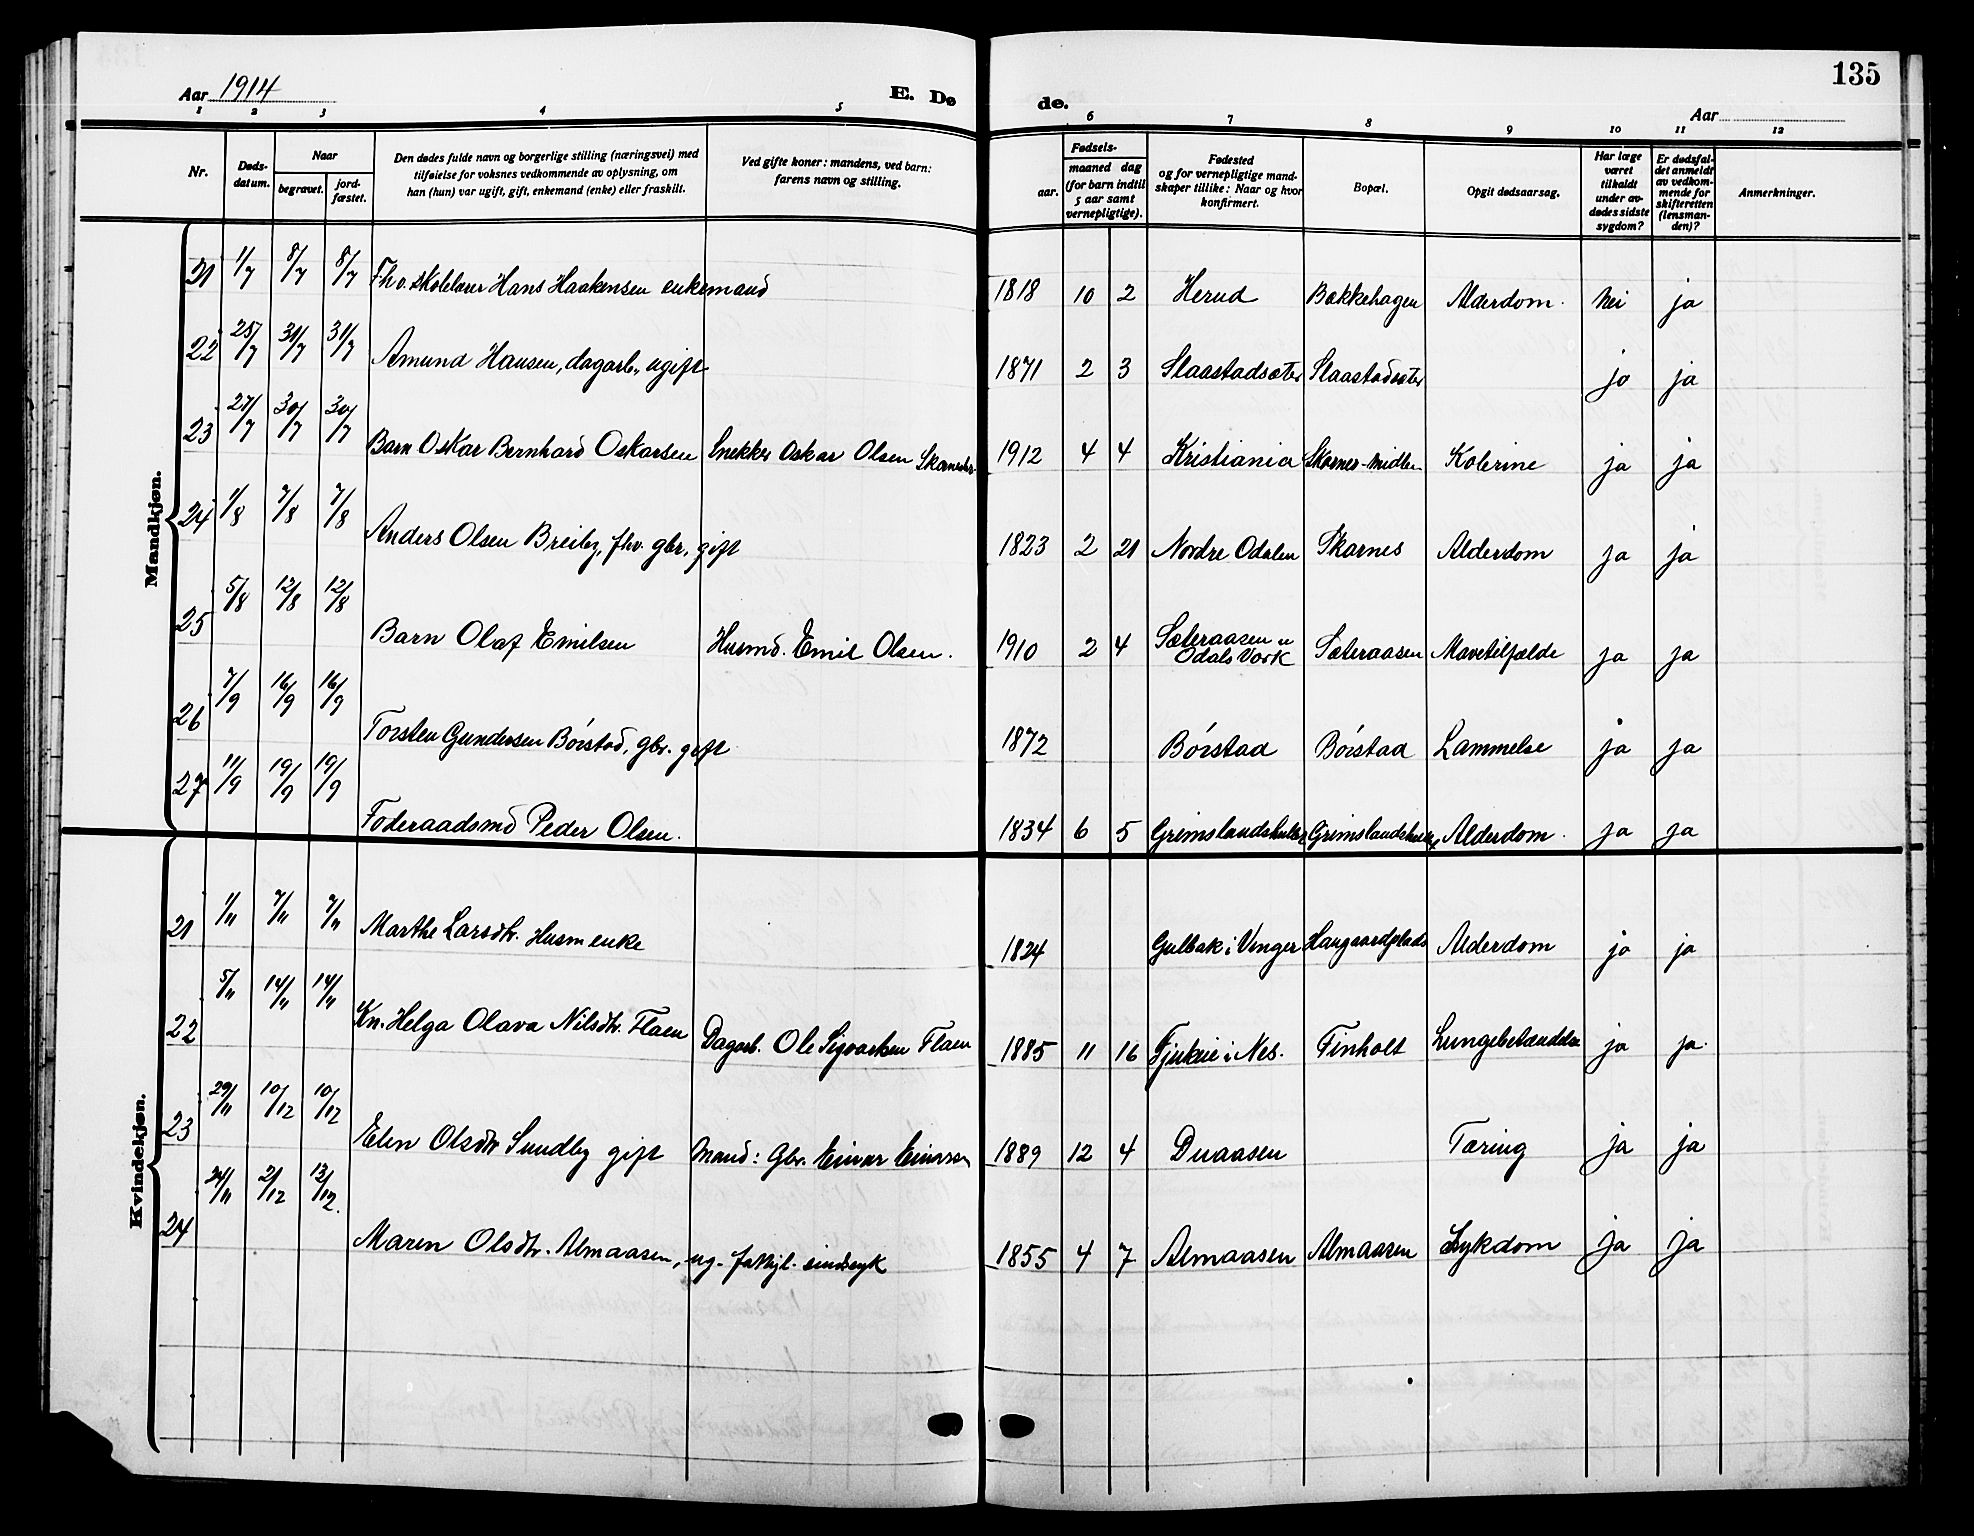 135
Aar 1914
E. Dø
de.
Aar
1 2 3 4 5 6 7 8 9 10 11 12
Nr.
Døds-
datum.
Naar
begravet.
jord-
fæstet.
Den dødes fulde navn og borgerlige stilling (næringsvei) med
tilføielse for voksnes vedkommende av oplysning, om
han (hun) var ugift, gift, enkemand (enke) eller fraskilt.
Ved gifte koner: mandens, ved barn:
farens navn og stilling.
Fødsels-
aar.
maaned dag
(for barn indtil
5 aar samt
vernepligtige).
Fødested
og for vernepligtige mand-
skaper tillike: Naar og hvor
konfirmert.
Bopæl.
Opgit dødsaarsag.
Har læge
været
tilkaldt
under av-
dødes sidste
sygdom?
Er dødsfal-
det anmeldt
av vedkom-
mende for
skifteretten
(lensman-
den)?
Anmerkninger.
Mandkjøn.
21 1/7 8/7 8/7 Fhv. skolelærer Hans Haakensen enkemand 1818 10 2 Herud Bakkehagen Alderdom. Nei ja
22 25/7 31/7 31/7 Amund Hansen, dagarb., ugift 1871 2 3 Slaastadsæter Slaastadsæter ja ja
23 27/7 30/7 30/7 Barn Oskar Bernhard Oskarsen Snekker Oskar Olsen 1912 4 4 Kristiania Skarnes-midtre Kolerine ja ja
24 1/8 7/8 7/8 Anders Olsen Breiby, fhv. gbr. gift 1823 2 21 Nordre Odalen Skarnes Alderdom ja ja
25 5/8 12/8 12/8 Barn Olaf Emilsen Husmd. Emil Olsen. 1910 2 4 Sæteraasen u Odals Værk Sæteraasen Mavetilfælde ja ja
26 7/9 16/9 16/9 Torsten Gundersen Børstad, gbr. gift 1872 Børstad Børstad Lammelse ja ja
27 11/9 19/9 19/9 Føderaadsmd Peder Olsen. 1834 6 5 Alderdom. ja ja
Kvindekjøn.
21 1/11 7/11 7/11 Marthe Larsdtr. Husm enke 1824 Gulbak i Vinger Haugaardplads Alderdom ja ja
22 5/11 14/11 14/11 Kn. Helga Olava Nilsdtr. Flaen Dagarb. Ole Sigvartsen Flaen 1885 11 16 i Nes. Finholt Lungebetændelse ja ja.
23 29/11 10/12 10/12 Elen Olsdtr Sundby gift Mand: Gbr. Einar Einarsen 1889 12 4 Duaasen Tæring ja ja
24 24/11 2/12 12/12. Maren Olsdtr. Almaasen, ug. fattigl. sindssyk 1855 4 7 Almaasen Almaasen Sykdom ja ja